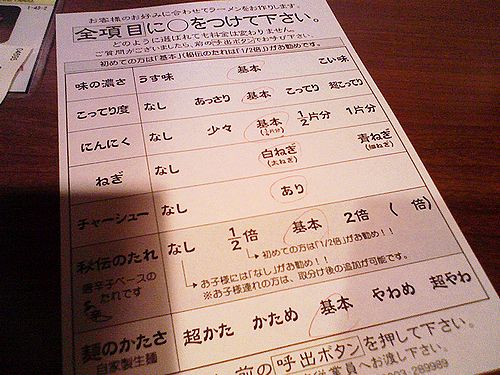 お客様のお好みに合わせてラーメンをお作りします。
全項目に○をつけて下さい。
どのように選ばれても料金は変わりません。
ご質問がございましたら、前の呼出ボタンでお呼び下さい。
初めての方は「基本」(秘伝のたれは「1/2倍」)がお勧めです。
味の濃さ うす味 基本 こい味
こってり度 なし あっさり 基本 こってり 超こってり
にんにく なし 少々 基本 1/2片分 1片分
(1/4片分)
ねぎ なし 白ねぎ 青ねぎ
(太ねぎ) (細ねぎ)
チャーシュー なし あり
秘伝のたれ なし 1/2倍 基本 2倍 ( 倍)
唐辛子ベースの
たれです
初めての方は「1/2倍」がお勧め!!
お子様には「なし」がお勧め!!
※お子様連れの方は、取分け後の追加が可能です。
麺のかたさ 超かた かため 基本 やわめ 超やわ
自家製生麺
前の呼出ボタンを押して下さい。
業員へお渡し下さい。